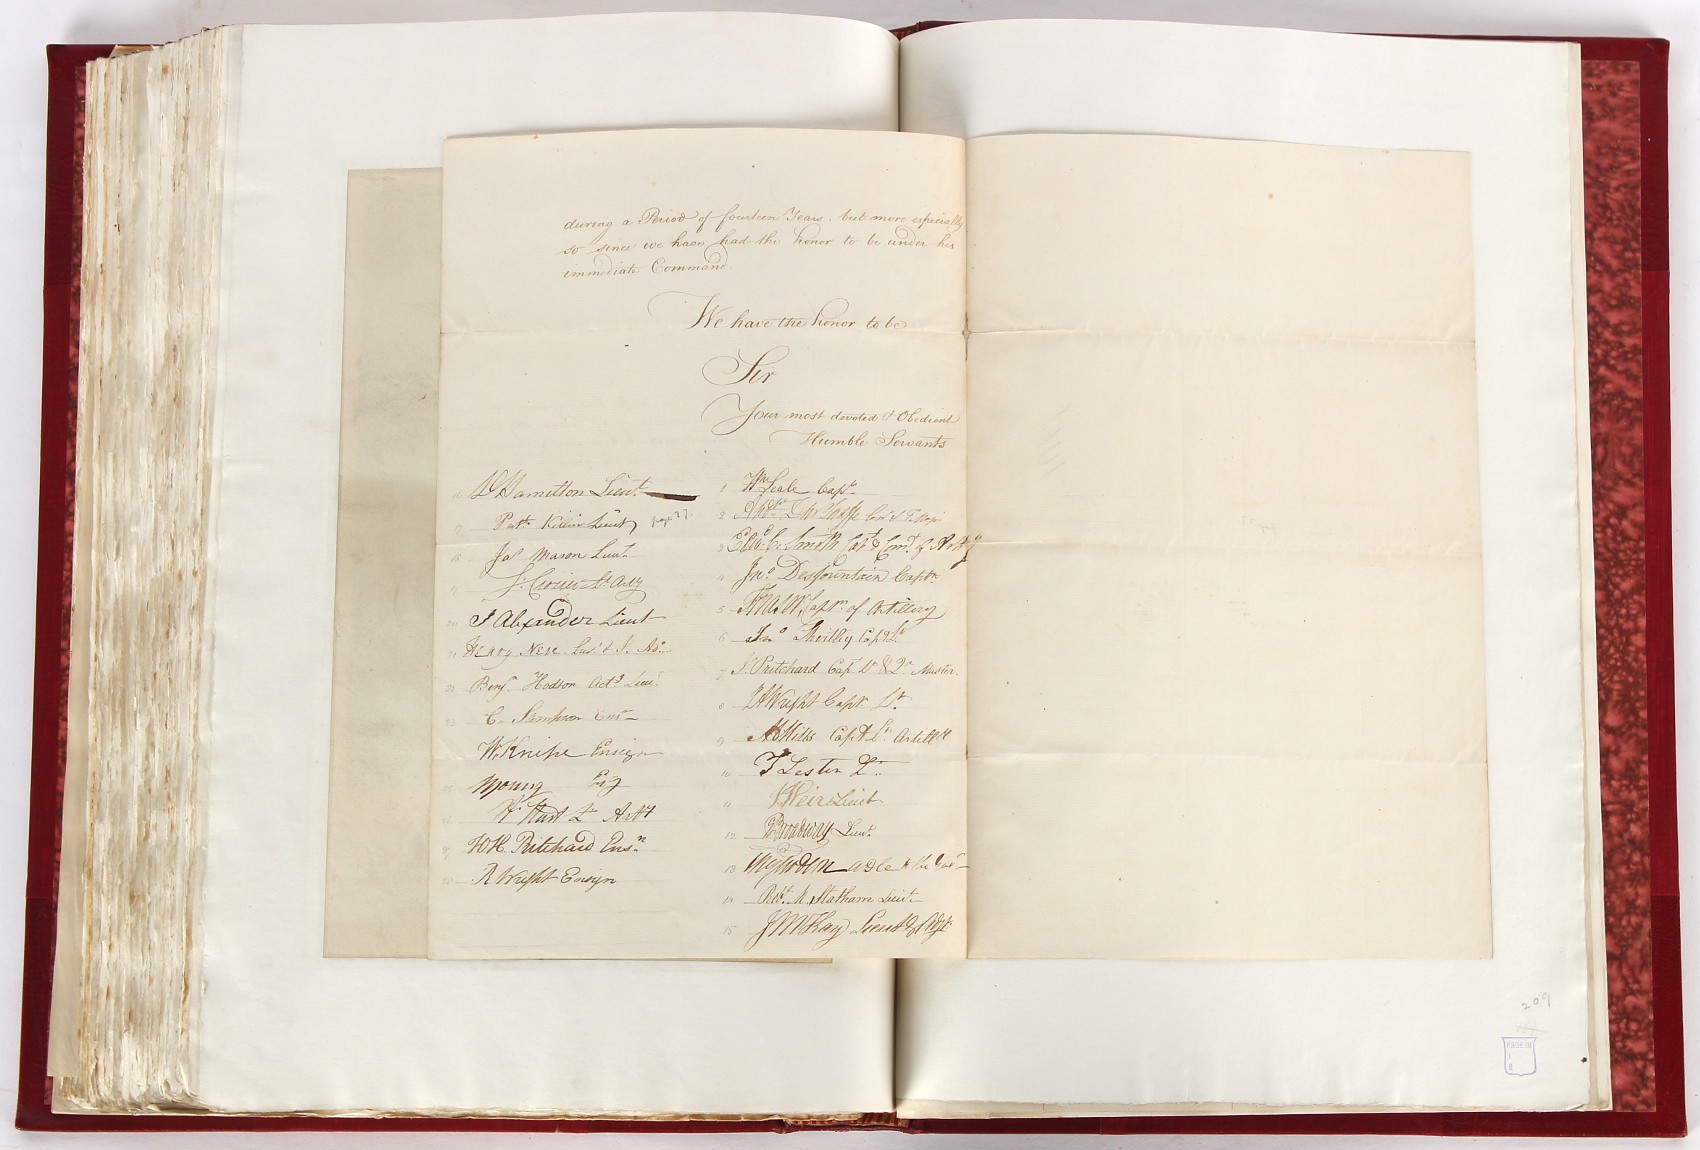 during a Period of fourteen Years, but more especially
so since we have had the honor to be under his
immediate Command.
We have the honor to be
Sir
Your most devoted & Obedient
Humble Servants
Hamilton Lieut.
17 Killin Lieut page 27.
Jas Mason Lieut
J Alexander Lieut
Henry
Benj. Hodson Actg Lieut.
C. Sampson Ens
W. Knipe Ensign
Young
Hart Lt Arty
W H. Pritchard Ensn
R Wright Ensign
1 Wm Seale Capt.
2
3 C. Smith Capt & Comt of Arty
Jno Desfountain Captn
5 Captn of Artillery
6 Jno Capt Lt
7 Pritchard Capt Lt & Qr Master.
8 Wright Capt. Lt
9 Mills Capt Lt Artilly
10 T Lester Lt
11 Weir Lieut
12 Broadway Lieut
13 to the Govr
14 Robt. M. Statham Lieut
15 J McKay Lieut & Adjt
209